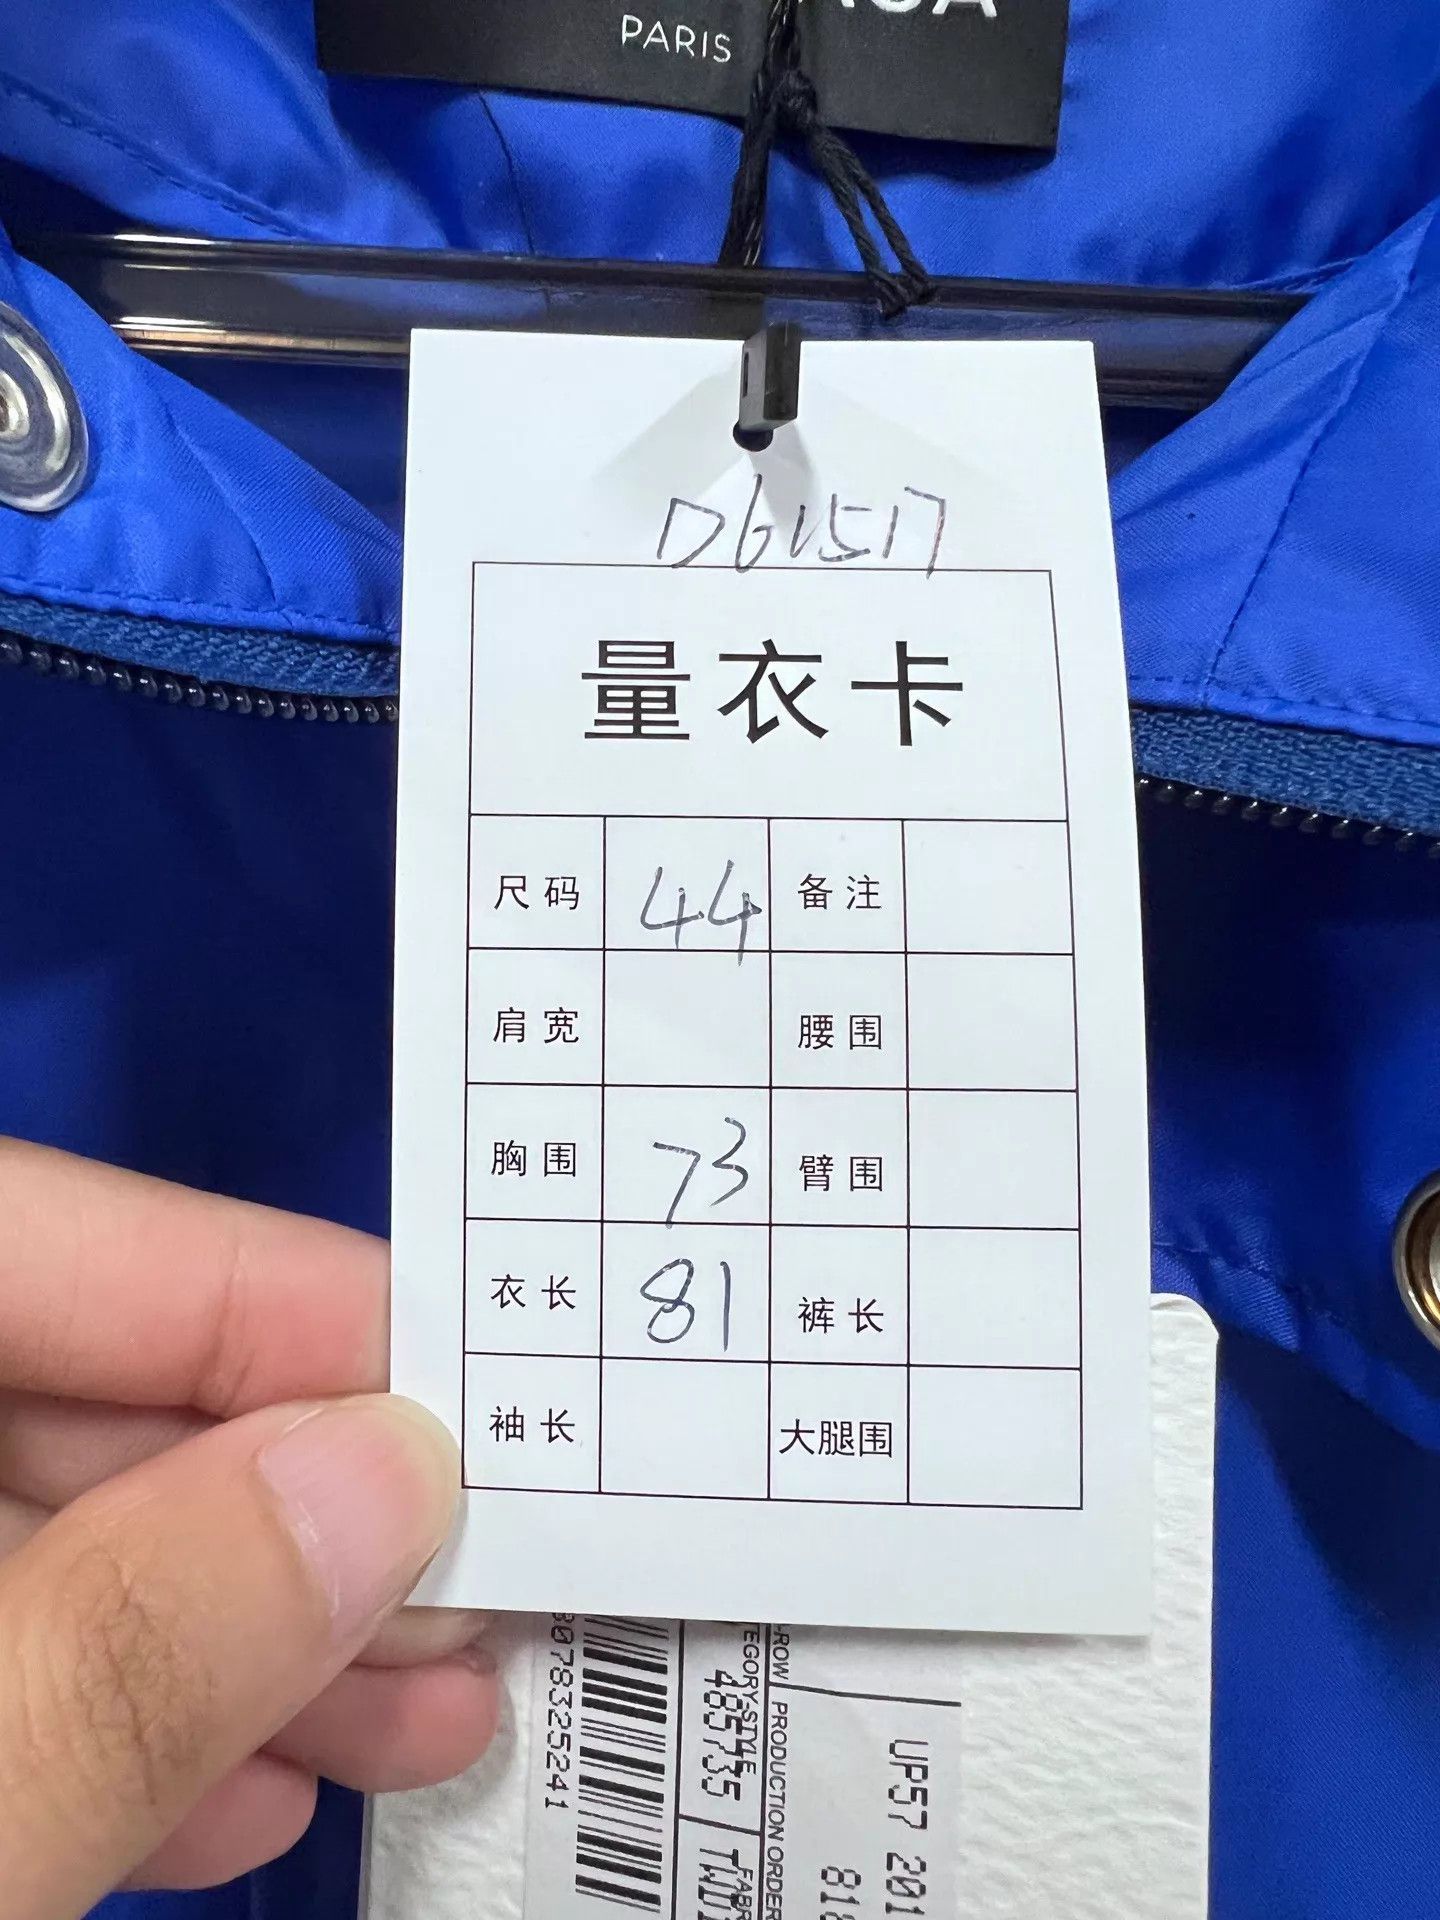 PARIS
D61517
量衣卡
尺码 44 备注
肩宽 腰围
胸围 73 臂围
衣长 81 裤长
袖长 大腿围
8078325241
485735
PRODUCTION ORDER
UP57 201
818